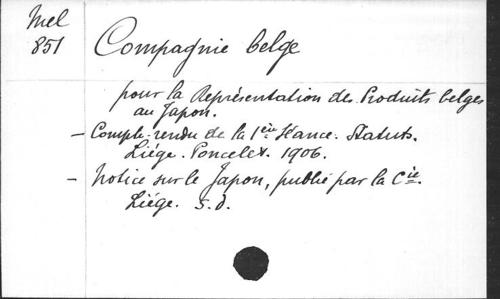 Mel
851
Compagnie belge
pour la Représentation des Produits belges
au Japon.
- Compte-rendu de la 1ère Séance. Statuts.
Liége. Poncelet. 1906.
- Notice sur le Japon, publié par la Cie.
Liége. s.d.